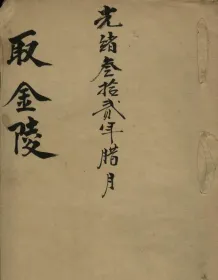 光緒叁拾貳年腊月
取金陵